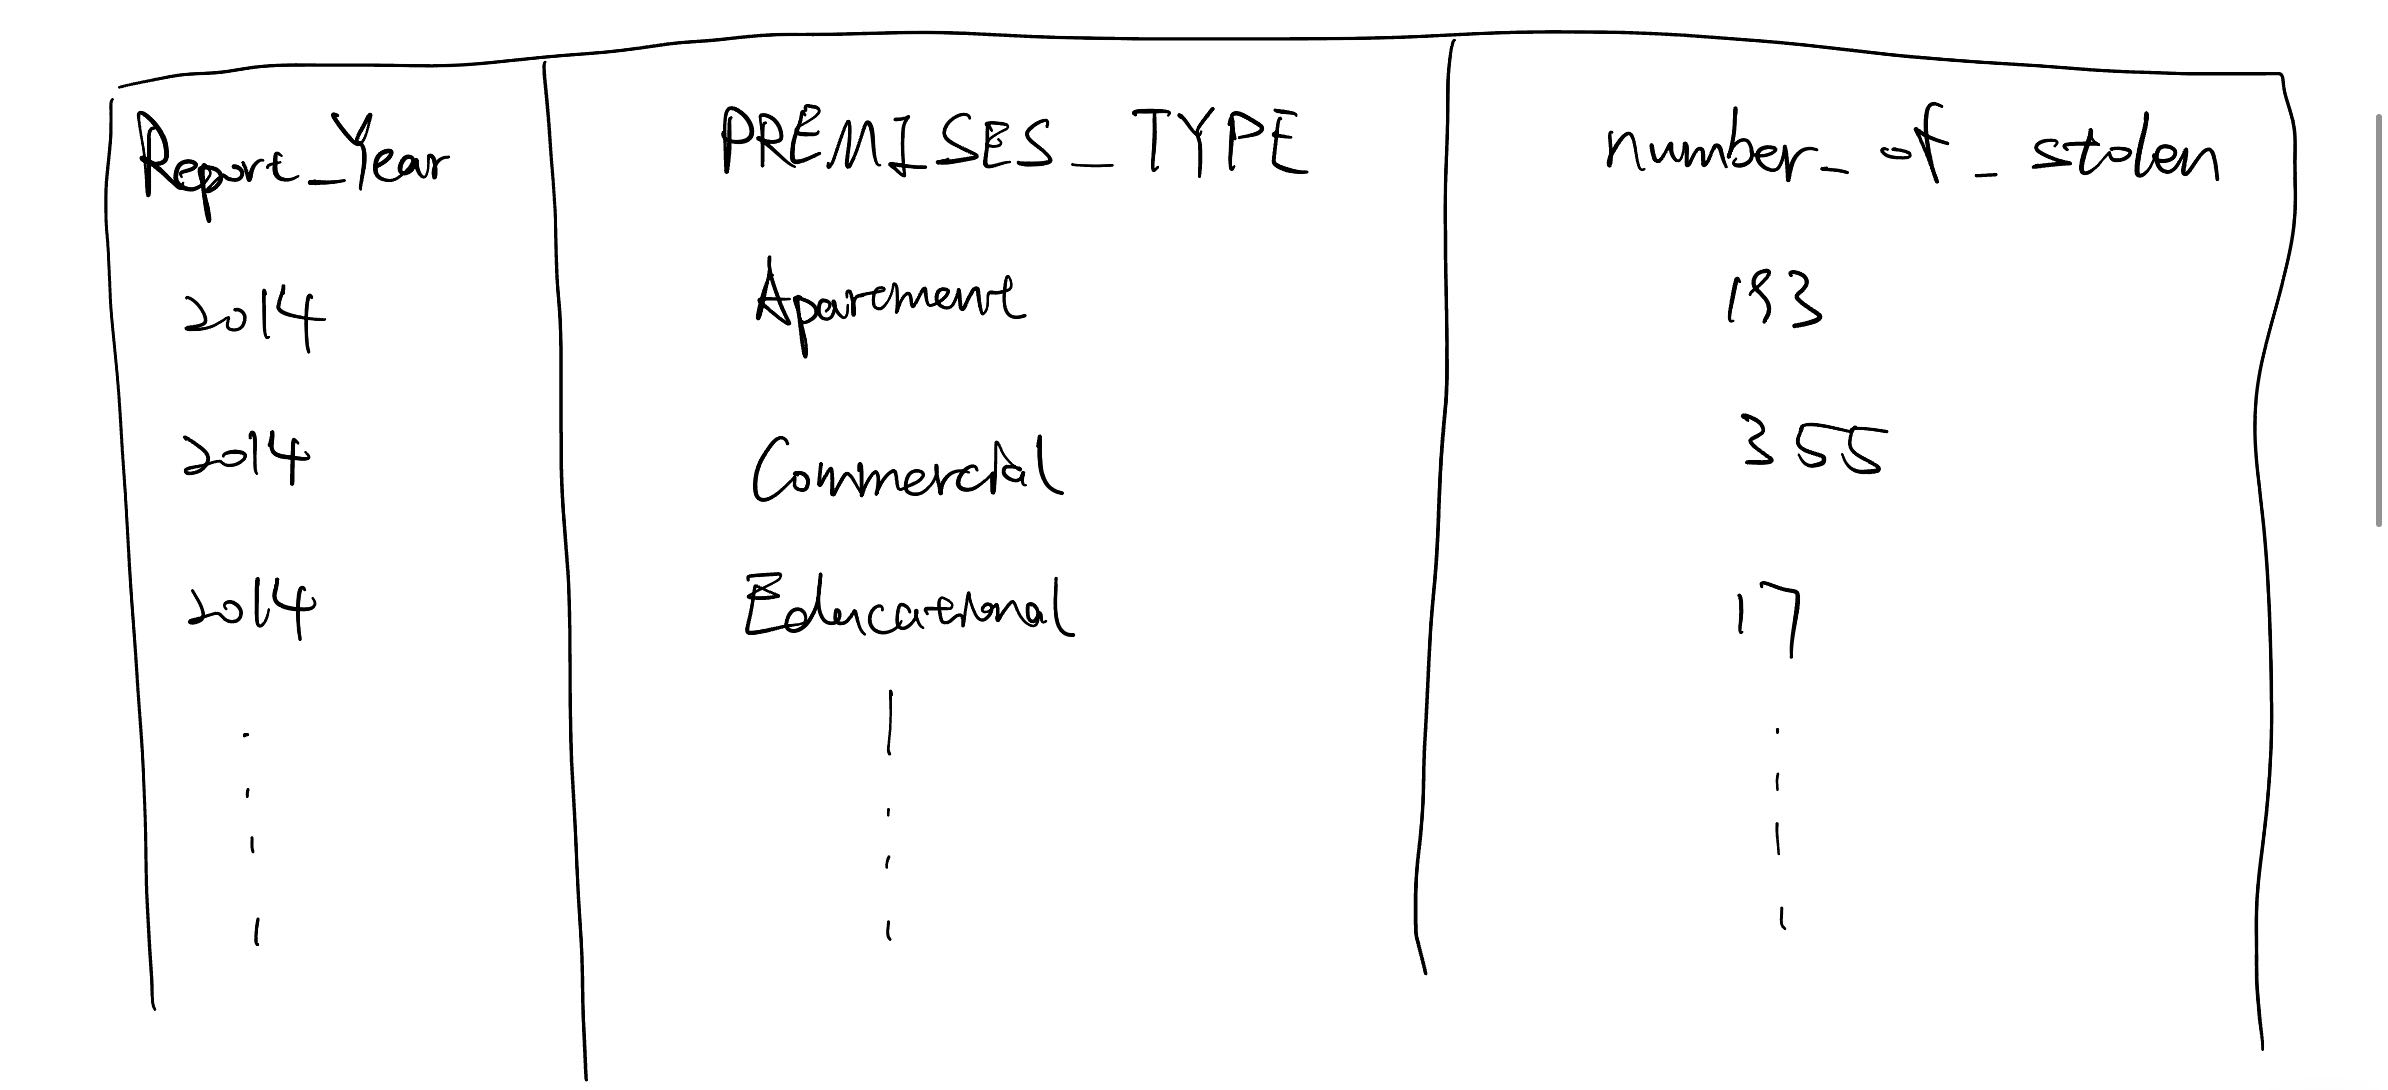 Report_Year PREMISES_TYPE number_of_stolen
2014 Aparement 193
2014 Commercial 355
2014 Educational 17